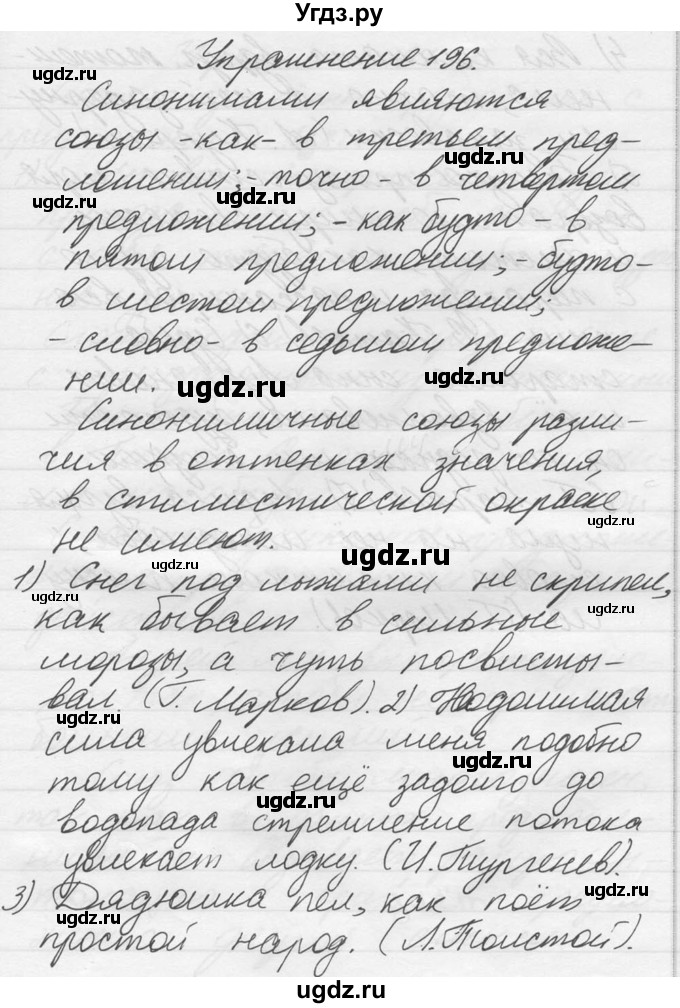 Угдз.ру
Упражнение 196.
Синонимами являются
союзы -как- в третьем пред-
ложении; - точно - в четвёртом
предложении; - как будто - в
пятом предложении; - будто-
в шестом предложении;
- словно - в седьмом предложе-
нии.
Синонимичные союзы разли-
чия в оттенках значения,
в стилистической окраске
не имеют.
1) Снег под лыжами не скрипел,
как бывает в сильные
морозы, а чуть посвисты-
вал. (Г. Марков). 2) Неодолимая
сила увлекала меня подобно
тому как ещё задолго до
водопада стремление потока
увлекает лодку. (И. Тургенев).
3) Дядюшка пел, как поёт
простой народ. (Л. Толстой).
ugdz.ru